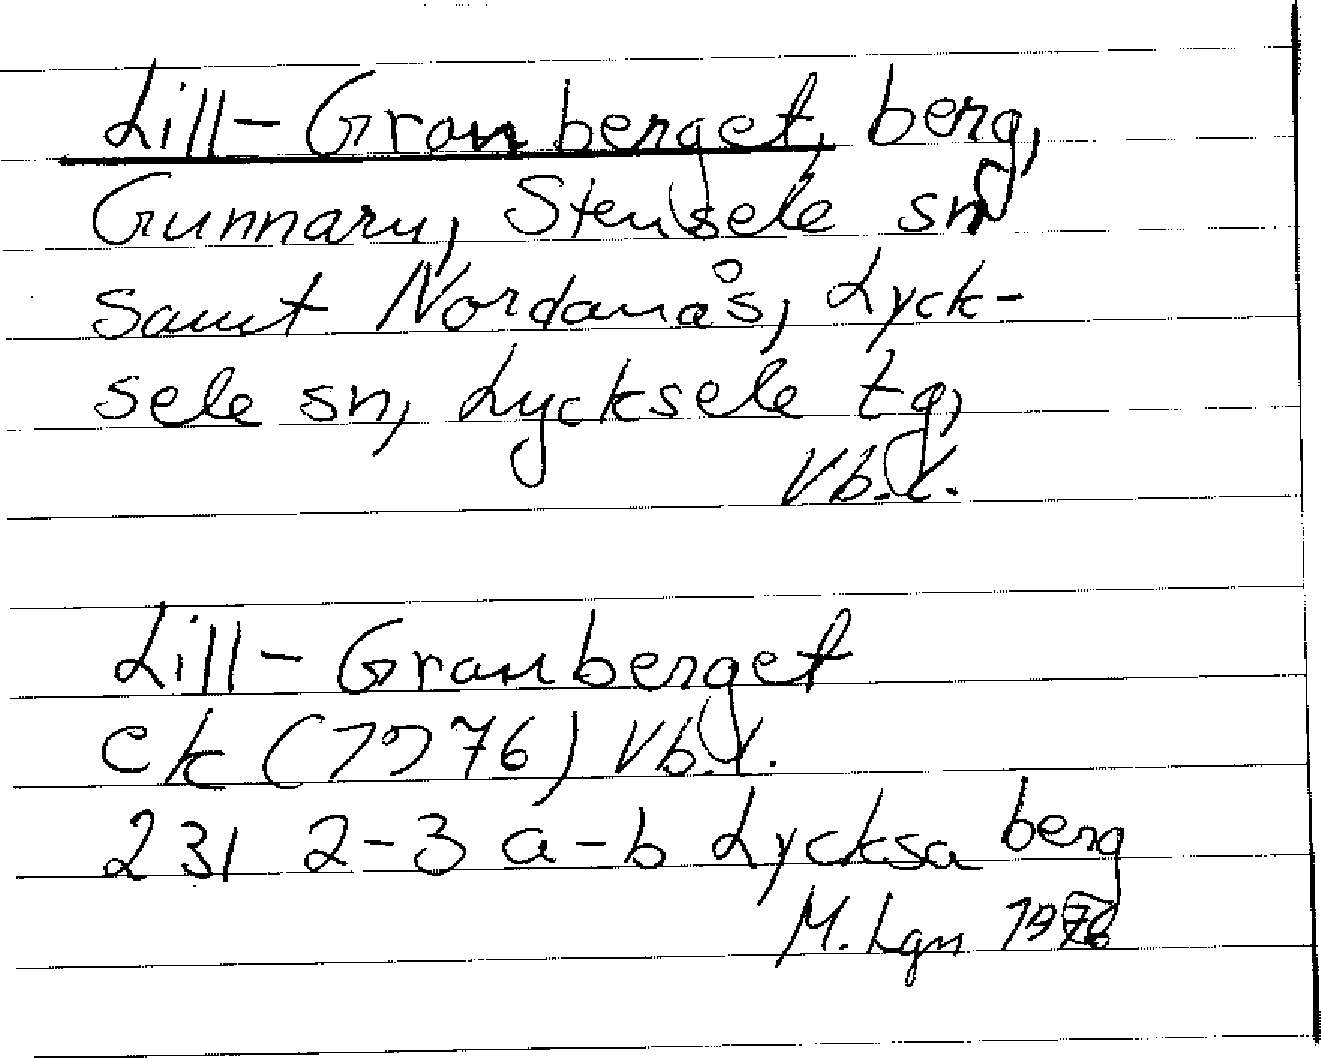 Lill-Granberget, berg,
Gunnarn, Stensele sn
samt Nordanås, Lyck-
sele sn, Lycksele tg,
Vb.l.
Lill-Granberget
ek (1976) Vb.l.
231 2-3 a-b Lycksaberg
M. Lgn 1976